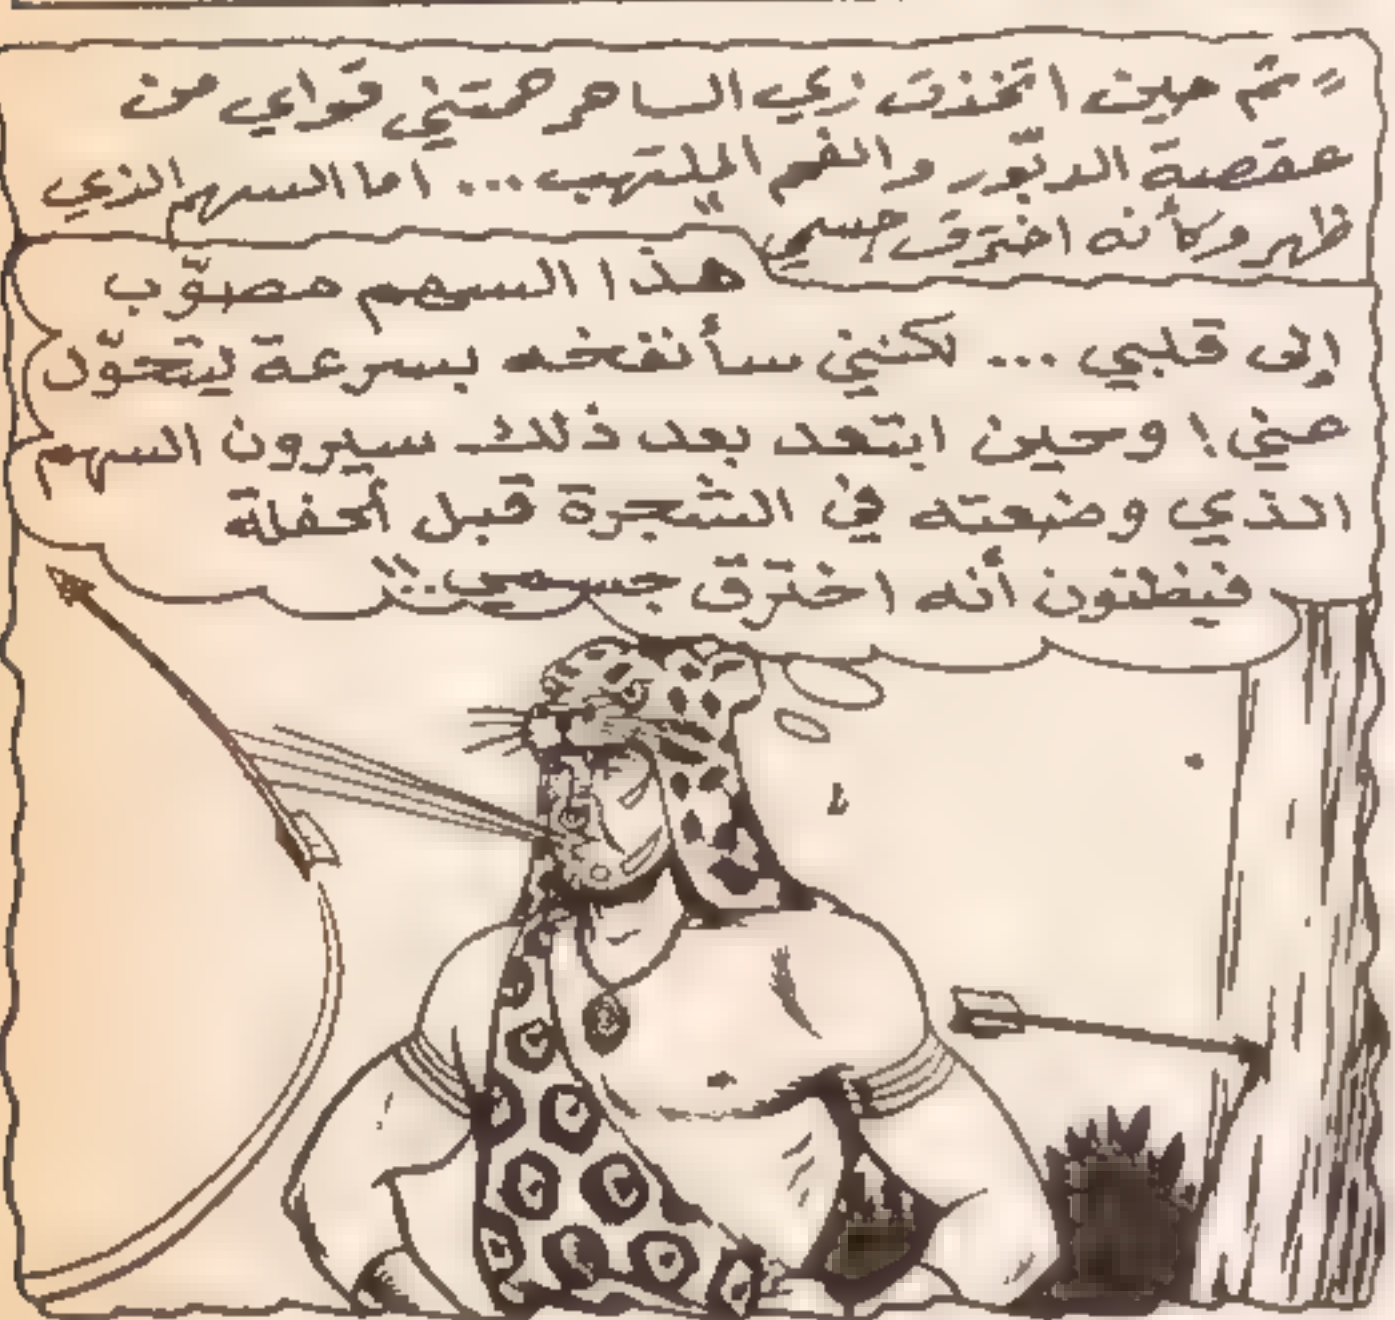 " ثم حين اتخذت زي الساحر حمتني قواي من
عقصة الدبّور والفم الملتهب ... اما السهم الذي
ظهر وكأنه اخترق جسمي "
هذا السهم مصوّب
إلى قلبي ... لكنني سأنفخه بسرعة ليتحوّل
عني ! وحين ابتعد بعد ذلك سيرون السهم
الذي وضعته في الشجرة قبل الحفلة
فيظنون أنه اخترق جسمي .. !!